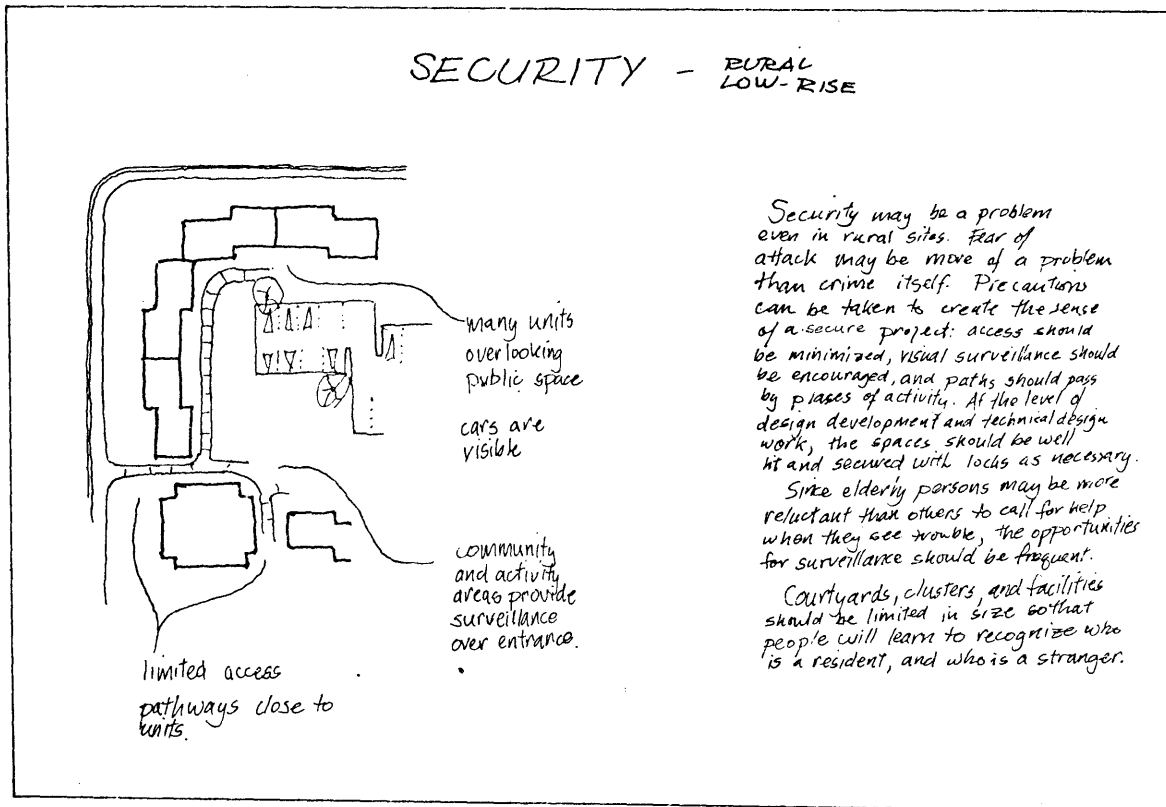 SECURITY - RURAL
LOW-RISE
many units
overlooking
public space
cars are
visible
community
and activity
areas provide
surveillance
over entrance.
limited access
pathways close to
units.
Security may be a problem
even in rural sites. Fear of
attack may be more of a problem
than crime itself. Precautions
can be taken to create the sense
of a secure project: access should
be minimized, visual surveillance should
be encouraged, and paths should pass
by places of activity. At the level of
design development and technical design
work, the spaces should be well
lit and secured with locks as necessary.
Since elderly persons may be more
reluctant than others to call for help
when they see trouble, the opportunities
for surveillance should be frequent.
Courtyards, clusters, and facilities
should be limited in size so that
people will learn to recognize who
is a resident, and who is a stranger.